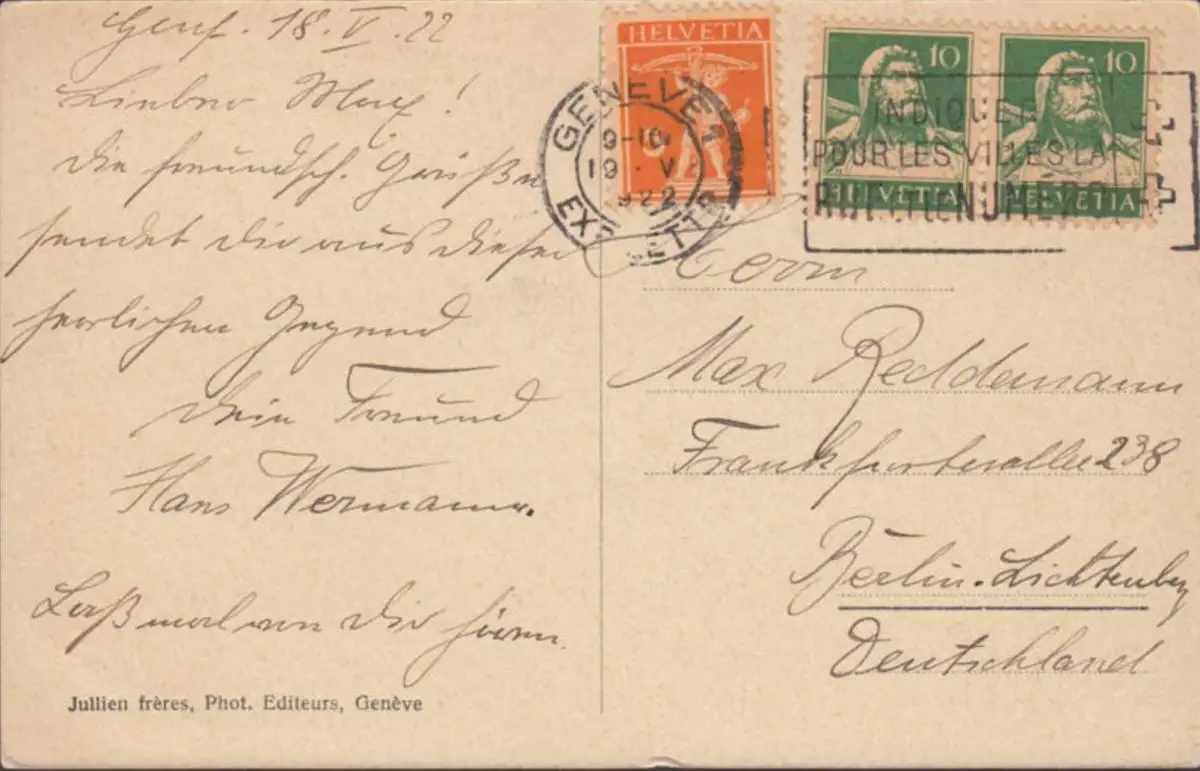 Genf. 18. V. 22
Lieber Max!
die freundsch. Grüße
sendet dir aus dieser
herrlichen Gegend
dein Freund
Hans Wermann.
Laß mal von dir hören.
Jullien frères, Phot. Editeurs, Genève
HELVETIA
GENEVE 1
9-10
19. V
1922
EXP. LETTR
10
10
HELVETIA
HELVETIA
INDIQUER
POUR LES VILLES LA
RUE ET LE NUMÉRO
Herrn
Max Reddemann
Frankfurterallee 238
Berlin-Lichtenberg
Deutschland